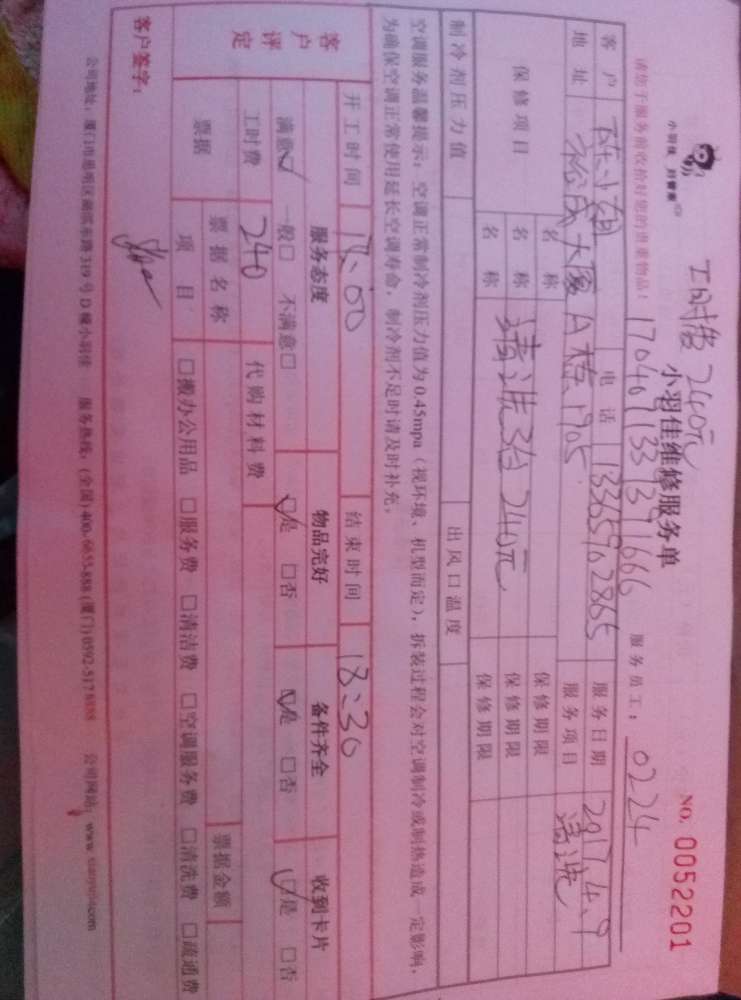 小羽佳 好管家
工时费 240元
小羽佳维修服务单
NO. 0052201
17040713313711666
请您于服务前收拾好您的贵重物品！
服务员工： 0224
客户 小姐 电话 13365962865 服务日期 2017.4.9
地址 裕成大厦A栋1905 服务项目 清洗
保修项目 名称 清洗3台240元 保修期限
名称 保修期限
名称 保修期限
制冷剂压力值 出风口温度
空调服务温馨提示：空调正常制冷剂压力值为0.45mpa（视环境、机型而定），拆装过程会对空调制冷或制热造成一定影响，
为确保空调正常使用延长空调寿命，制冷剂不足时请及时补充。
开工时间 结束时间 18:30
客户评定 服务态度 物品完好 备件齐全 收到卡片
满意☑ 一般□ 不满意□ ☑是 □否 ☑是 □否 ☑是 □否
工时费 240 代购材料费
票据 票据名称 票据金额
项目 □搬办公用品 □服务费 □清洁费 □空调服务费 □清洗费 □疏通费
客户签字：
公司地址：厦门市思明区湖滨东路319号D幢小羽佳 服务热线：(全国)400-6655-888 (厦门)0592-5178888 公司网站：www.xiaoyujia.com